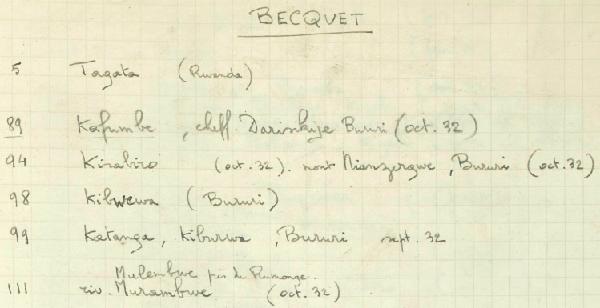 BECQUET
5 Tagata (Rwanda)
89 Kafumbe, cheff. Bururi (oct. 32)
94 Kirabiro (oct. 32). mont , Bururi (oct. 32)
98 Kibwewa (Bururi)
99 Katanga, Kiburwa, Bururi sept. 32
Mulembwe près de Rumonge.
111 riv. Murambwe (oct. 32)